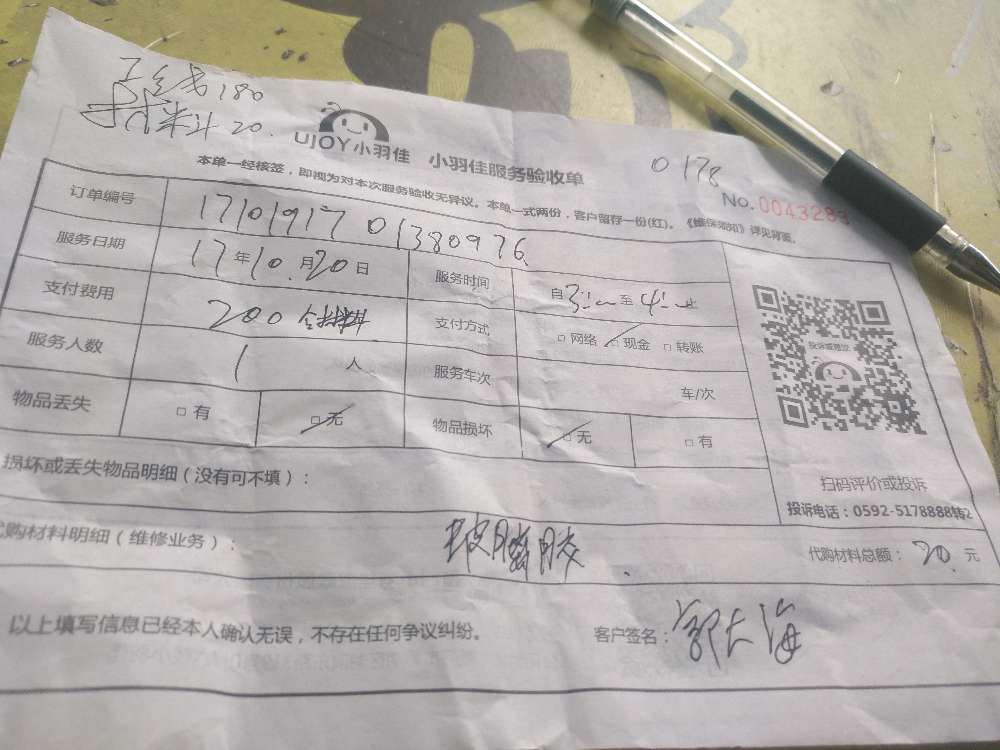 工钱 180
材料 20.
UJOY小羽佳 小羽佳服务验收单
0178
No.004328
本单一经核签，即视为对本次服务验收无异议。本单一式两份，客户留存一份(红)。《维保须知》详见背面。
订单编号 1710191701380976
服务日期 17年10月20日 服务时间 自3:
至4:
支付费用 200 含材料 支付方式 □网络 □现金 □转账
服务人数 1人 服务车次 车/次
物品丢失 □有 □无 物品损坏 □无 □有
投诉或建议
扫码评价或投诉
投诉电话：0592-5178888转2
损坏或丢失物品明细（没有可不填）：
购材料明细（维修业务）： 玻璃胶 代购材料总额：20.元
以上填写信息已经本人确认无误，不存在任何争议纠纷。 客户签名：郭大海